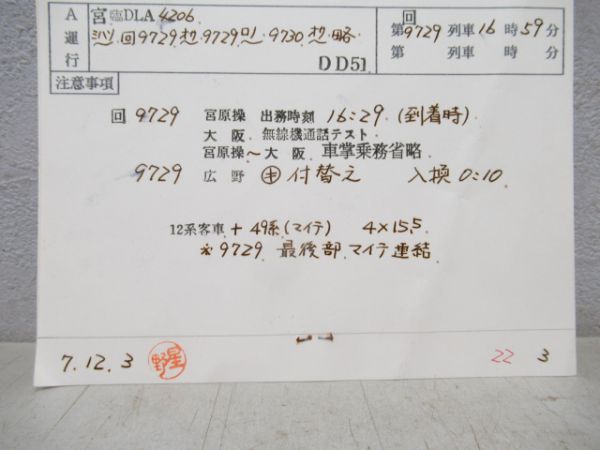 A運行 宮臨DLA4206
ミハソ 回9729 オサ 9729ロノ 9730 オサ 略
DD51
回
第9729列車16時59分
第 列車 時 分
注意事項
回 9729 宮原操 出務時刻 16:29 (到着時)
大阪 無線機通話テスト
宮原操~大阪 車掌乗務省略
9729 広野 ㋖ 付替え 入換 0:10
12系客車 + 49系(マイテ) 4×15.5
※9729 最後部 マイテ連結
7.12.3 星野
22 3